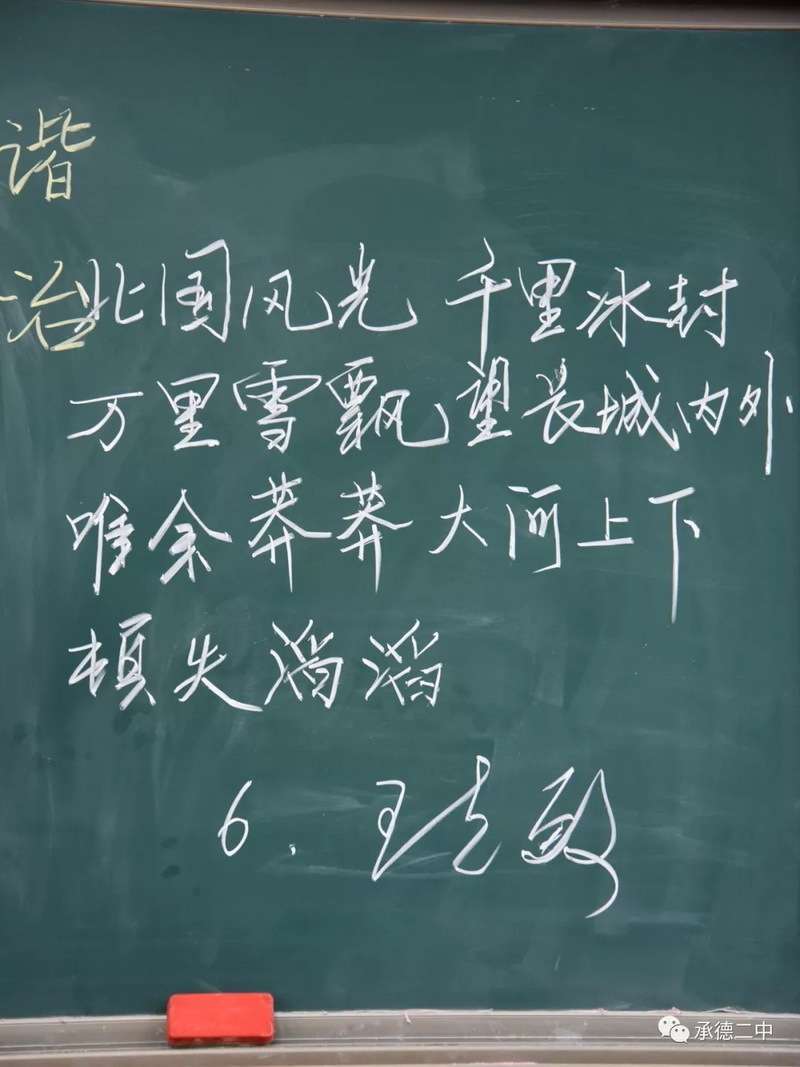 谐
治
北国风光 千里冰封
万里雪飘望长城内外
唯余莽莽大河上下
顿失滔滔
6.王
承德二中